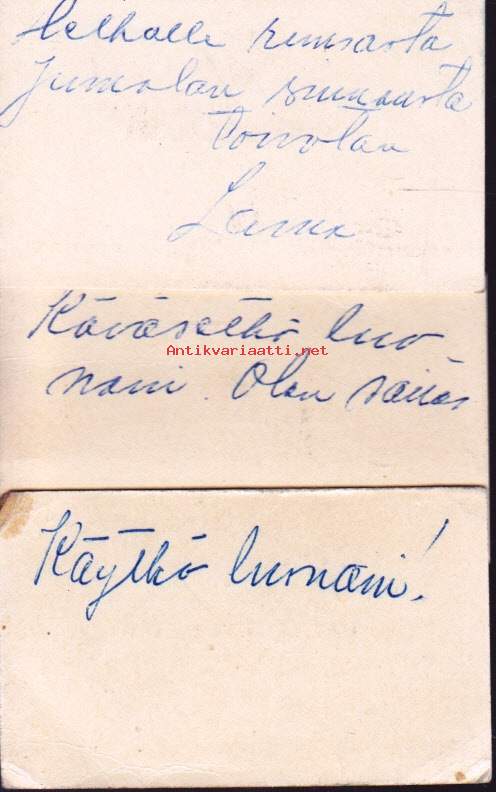 Helhalle runsasta
Jumalan siunausta
toivotan
Laina
Käväsetkö luo-
nani. Olen
Antikvariaatti.net
Käytkö luonani!